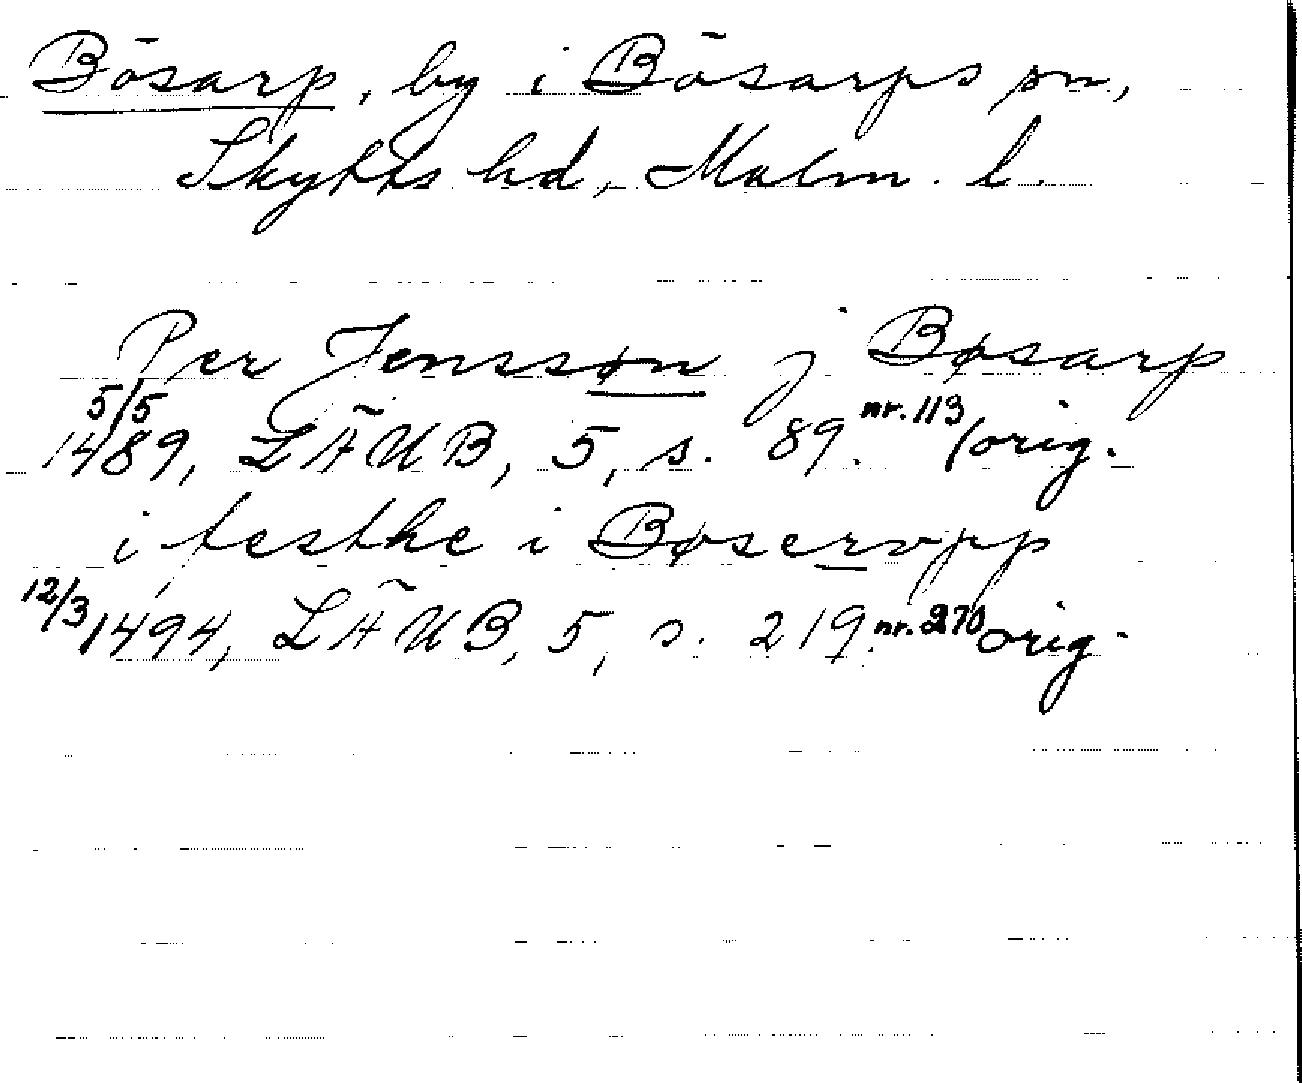 Bösarp, by i Bösarps sn,
Skytts hd, Malm. l.
Per Jenssøn j Bøsarp
5/5 1489, LÄUB, 5, s. 89. nr. 113 orig.
i festhe i Bøserupp
12/3 1494, LÄUB, 5, s. 219. nr. 270 orig.